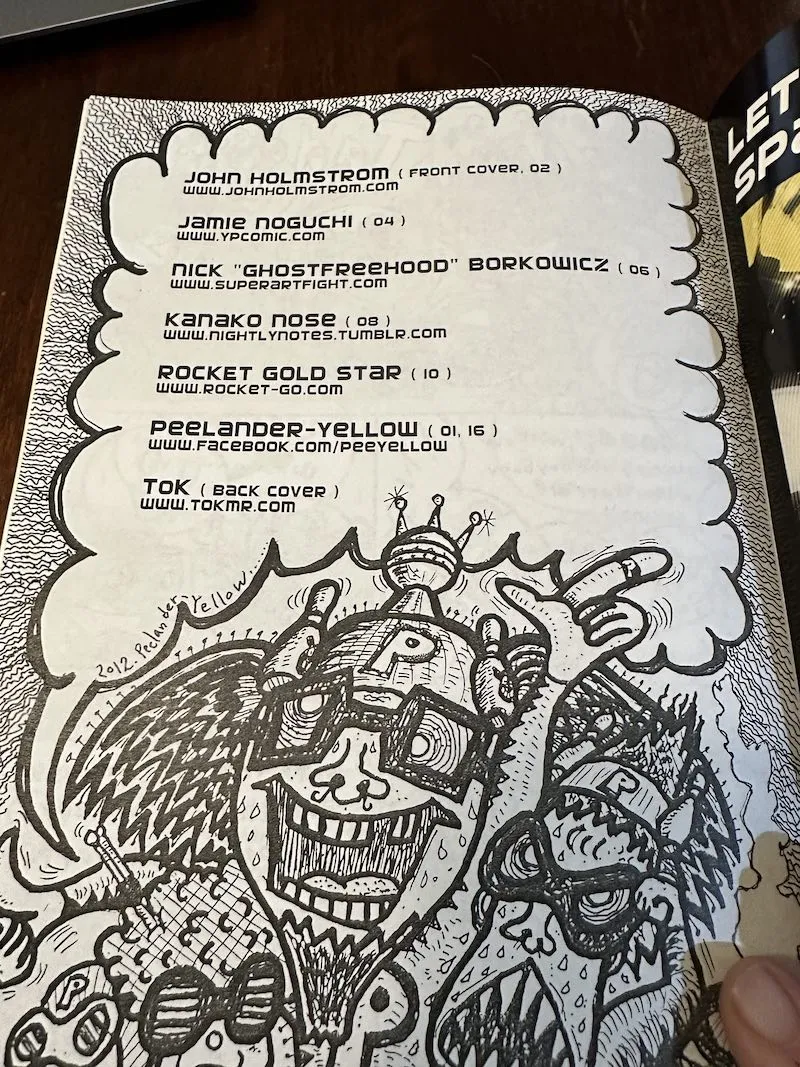 JOHN HOLMSTROM ( FRONT COVER, 02 )
WWW.JOHNHOLMSTROM.COM
JAMIE NOGUCHI ( 04 )
WWW.YPCOMIC.COM
NICK "GHOSTFREEHOOD" BORKOWICZ ( 06 )
WWW.SUPERARTFIGHT.COM
KANAKO NOSE ( 08 )
WWW.NIGHTLYNOTES.TUMBLR.COM
ROCKET GOLD STAR ( 10 )
WWW.ROCKET-GO.COM
PEELANDER-YELLOW ( 01, 16 )
WWW.FACEBOOK.COM/PEEYELLOW
TOK ( BACK COVER )
WWW.TOKMR.COM
2012. Peelander-Yellow.
P
P
P
P
LET